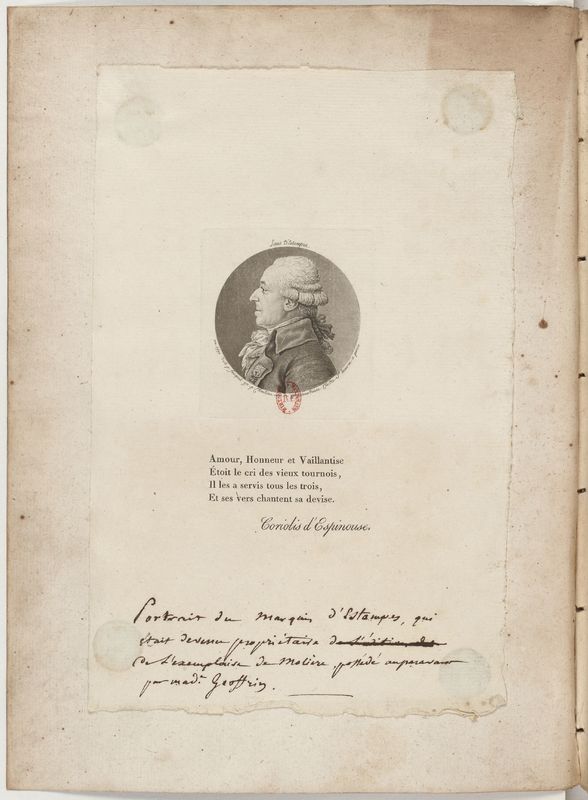 Louis d'Estampes.
Amour, Honneur et Vaillantise
Étoit le cri des vieux tournois,
Il les a servis tous les trois,
Et ses vers chantent sa devise.
Coriolis d'Espinouse.
Portrait du marquis d'Estampes, qui
était devenu propriétaire de l'édition de
de l'exemplaire de Molière possédé auparavant
par mad.e Geoffrin.